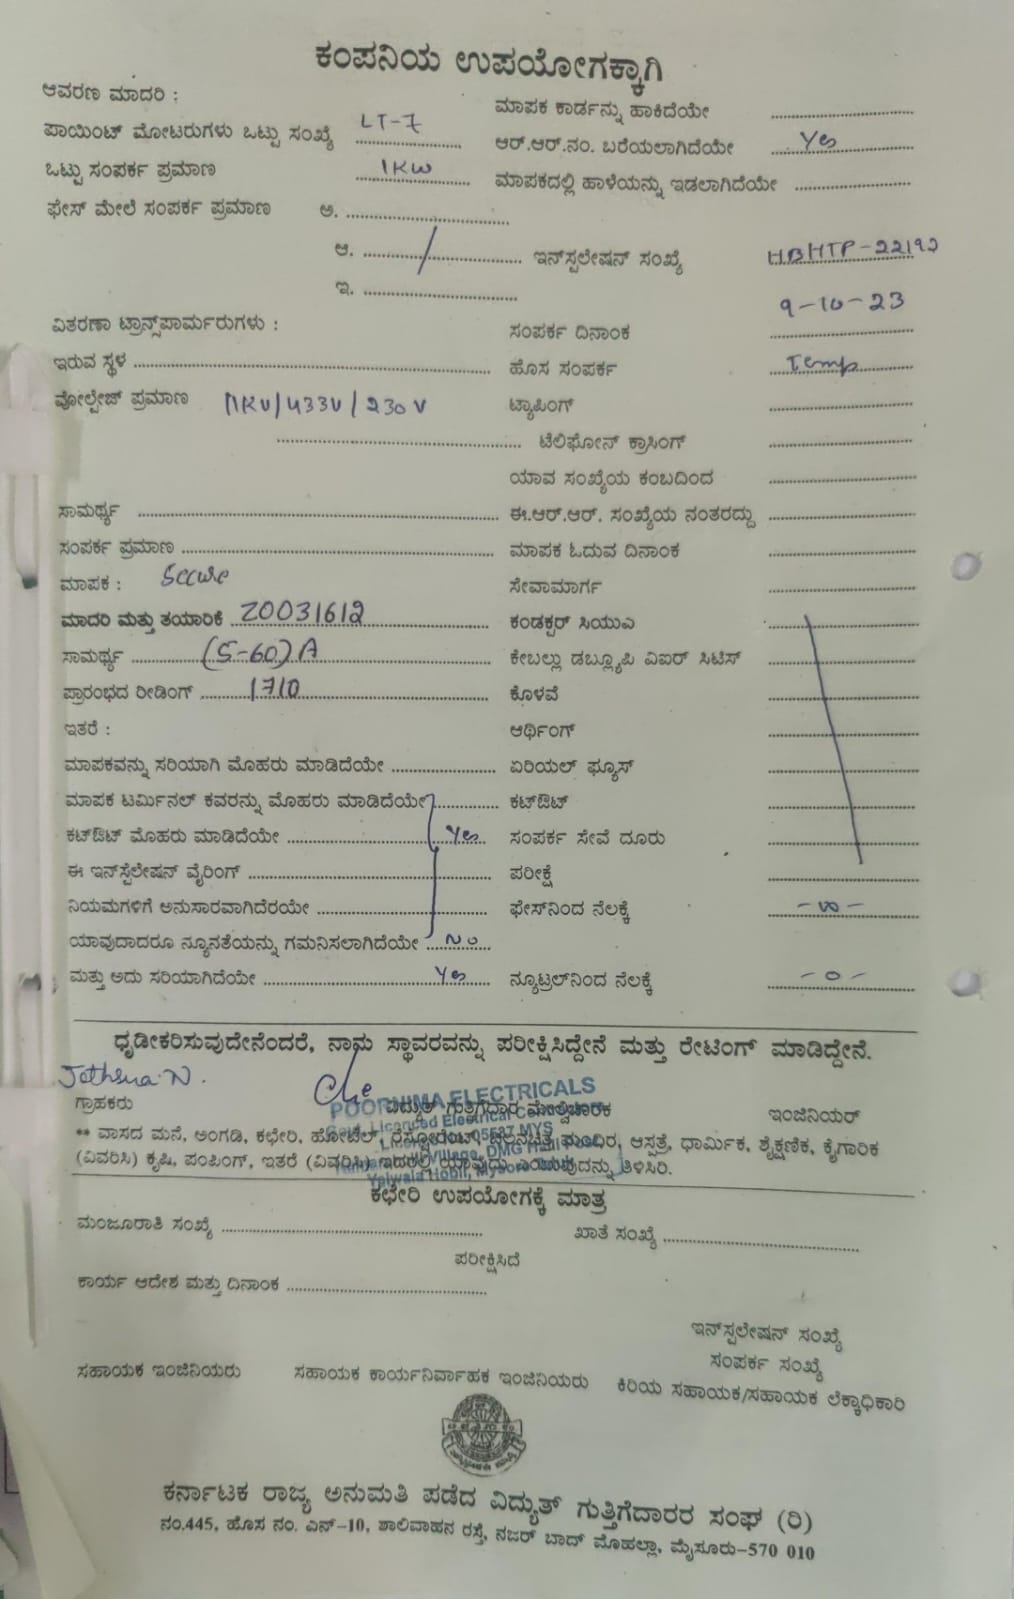 ಕಂಪನಿಯ ಉಪಯೋಗಕ್ಕಾಗಿ
ಆವರಣ ಮಾದರಿ :
ಮಾಪಕ ಕಾರ್ಡನ್ನು ಹಾಕಿದೆಯೇ
ಪಾಯಿಂಟ್ ಮೋಟರುಗಳು ಒಟ್ಟು ಸಂಖ್ಯೆ LT-7
ಆರ್.ಆರ್.ನಂ. ಬರೆಯಲಾಗಿದೆಯೇ Yes
ಒಟ್ಟು ಸಂಪರ್ಕ ಪ್ರಮಾಣ 1KW
ಮಾಪಕದಲ್ಲಿ ಹಾಳೆಯನ್ನು ಇಡಲಾಗಿದೆಯೇ
ಫೇಸ್ ಮೇಲೆ ಸಂಪರ್ಕ ಪ್ರಮಾಣ ಅ.
ಆ. ಇನ್‌ಸ್ಟಲೇಷನ್ ಸಂಖ್ಯೆ HBHTP-22192
ಇ.
ವಿತರಣಾ ಟ್ರಾನ್ಸ್‌ಪಾರ್ಮರುಗಳು :
ಸಂಪರ್ಕ ದಿನಾಂಕ 9-10-23
ಇರುವ ಸ್ಥಳ
ಹೊಸ ಸಂಪರ್ಕ Temp
ವೋಲ್ಟೇಜ್ ಪ್ರಮಾಣ 11KV/433V/230V
ಟ್ಯಾಪಿಂಗ್
ಟೆಲಿಫೋನ್ ಕ್ರಾಸಿಂಗ್
ಯಾವ ಸಂಖ್ಯೆಯ ಕಂಬದಿಂದ
ಸಾಮರ್ಥ್ಯ
ಈ.ಆರ್.ಆರ್. ಸಂಖ್ಯೆಯ ನಂತರದ್ದು
ಸಂಪರ್ಕ ಪ್ರಮಾಣ
ಮಾಪಕ ಓದುವ ದಿನಾಂಕ
ಮಾಪಕ : Secure
ಸೇವಾಮಾರ್ಗ
ಮಾದರಿ ಮತ್ತು ತಯಾರಿಕೆ 20031612
ಕಂಡಕ್ಟರ್ ಸಿಯುಎ
ಸಾಮರ್ಥ್ಯ (5-60)A
ಕೇಬಲ್ಲು ಡಬ್ಲ್ಯೂಪಿ ವಿಐರ್ ಸಿಟಿಸ್
ಪ್ರಾರಂಭದ ರೀಡಿಂಗ್ 1710
ಕೊಳವೆ
ಇತರೆ :
ಆರ್ಥಿಂಗ್
ಮಾಪಕವನ್ನು ಸರಿಯಾಗಿ ಮೊಹರು ಮಾಡಿದೆಯೇ
ಏರಿಯಲ್ ಫ್ಯೂಸ್
ಮಾಪಕ ಟರ್ಮಿನಲ್ ಕವರನ್ನು ಮೊಹರು ಮಾಡಿದೆಯೇ
ಕಟ್‌ಔಟ್
ಕಟ್‌ಔಟ್ ಮೊಹರು ಮಾಡಿದೆಯೇ Yes
ಸಂಪರ್ಕ ಸೇವೆ ದೂರು
ಈ ಇನ್‌ಸ್ಟೆಲೇಷನ್ ವೈರಿಂಗ್
ಪರೀಕ್ಷೆ
ನಿಯಮಗಳಿಗೆ ಅನುಸಾರವಾಗಿದೆರಯೇ
ಫೇಸ್‌ನಿಂದ ನೆಲಕ್ಕೆ -∞-
ಯಾವುದಾದರೂ ನ್ಯೂನತೆಯನ್ನು ಗಮನಿಸಲಾಗಿದೆಯೇ No
ಮತ್ತು ಅದು ಸರಿಯಾಗಿದೆಯೇ Yes
ನ್ಯೂಟ್ರಲ್‌ನಿಂದ ನೆಲಕ್ಕೆ -0-
ಧೃಡೀಕರಿಸುವುದೇನೆಂದರೆ, ನಾನು ಸ್ಥಾವರವನ್ನು ಪರೀಕ್ಷಿಸಿದ್ದೇನೆ ಮತ್ತು ರೇಟಿಂಗ್ ಮಾಡಿದ್ದೇನೆ.
POORNIMA ELECTRICALS
ಗ್ರಾಹಕರು ವಿದ್ಯುತ್ ಗುತ್ತಿಗೆದಾರ ಮೇಲ್ವಿಚಾರಕ ಇಂಜಿನಿಯರ್
** ವಾಸದ ಮನೆ, ಅಂಗಡಿ, ಕಛೇರಿ, ಹೋಟೆಲ್ ರೆಸ್ಟೋರೆಂಟ್, ಚಲನಚಿತ್ರ ಮಂದಿರ, ಆಸ್ಪತ್ರೆ, ಧಾರ್ಮಿಕ, ಶೈಕ್ಷಣಿಕ, ಕೈಗಾರಿಕ
(ವಿವರಿಸಿ) ಕೃಷಿ, ಪಂಪಿಂಗ್, ಇತರೆ (ವಿವರಿಸಿ) ಇದರಲ್ಲಿ ಯಾವುದು ಎಂಬುವುದನ್ನು ತಿಳಿಸಿರಿ.
Yelwala Hobli,
ಕಛೇರಿ ಉಪಯೋಗಕ್ಕೆ ಮಾತ್ರ
ಮಂಜೂರಾತಿ ಸಂಖ್ಯೆ ಖಾತೆ ಸಂಖ್ಯೆ
ಪರೀಕ್ಷಿಸಿದೆ
ಕಾರ್ಯ ಆದೇಶ ಮತ್ತು ದಿನಾಂಕ
ಇನ್‌ಸ್ಟಲೇಷನ್ ಸಂಖ್ಯೆ
ಸಂಪರ್ಕ ಸಂಖ್ಯೆ
ಸಹಾಯಕ ಇಂಜಿನಿಯರು ಸಹಾಯಕ ಕಾರ್ಯನಿರ್ವಾಹಕ ಇಂಜಿನಿಯರು ಕಿರಿಯ ಸಹಾಯಕ/ಸಹಾಯಕ ಲೆಕ್ಕಾಧಿಕಾರಿ
ಕರ್ನಾಟಕ ರಾಜ್ಯ ಅನುಮತಿ ಪಡೆದ ವಿದ್ಯುತ್ ಗುತ್ತಿಗೆದಾರರ ಸಂಘ (ರಿ)
ನಂ.445, ಹೊಸ ನಂ. ಎನ್-10, ಶಾಲಿವಾಹನ ರಸ್ತೆ, ನಜರ್ ಬಾದ್ ಮೊಹಲ್ಲಾ, ಮೈಸೂರು-570 010